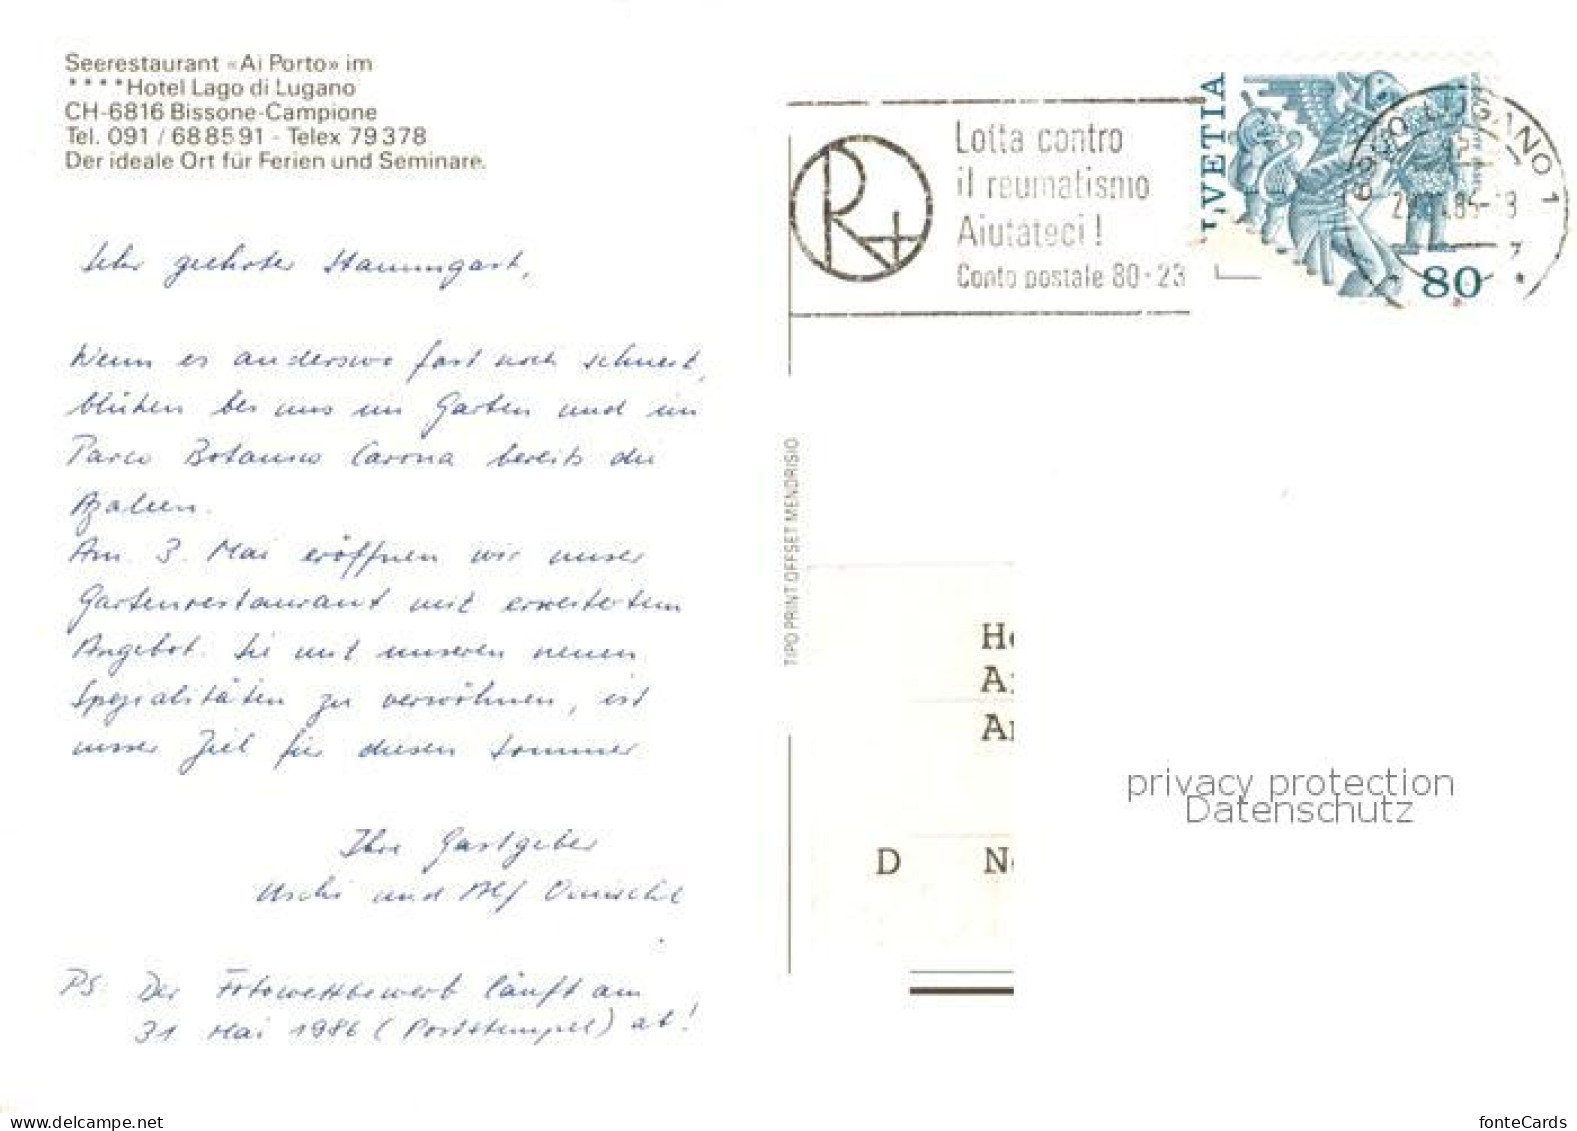 Seerestaurant «Ai Porto» im
****Hotel Lago di Lugano
CH-6816 Bissone-Campione
Tel. 091 / 68 85 91 - Telex 79 378
Der ideale Ort für Ferien und Seminare.
Sehr geehrter Stammgast,
Wenn es anderswo fast noch schneit,
blühen bei uns im Garten und im
Parco Botanico Carona bereits die
Azaleen.
Am 3. Mai eröffnen wir unser
Gartenrestaurant mit erweitertem
Angebot. Sie mit unseren neuen
Spezialitäten zu verwöhnen, ist
unser Ziel für diesen Sommer.
Ihre Gastgeber
Uschi und Alf
PS: Der Fotowettbewerb läuft am
31 Mai 1986 (Poststempel) ab!
TIPO PRINT OFFSET MENDRISIO
R+
Lotta contro
il reumatismo
Aiutateci!
Conto postale 80-23
HELVETIA
80
6900 LUGANO 1
He
A
A
D N
privacy protection
Datenschutz
www.delcampe.net
fonteCards